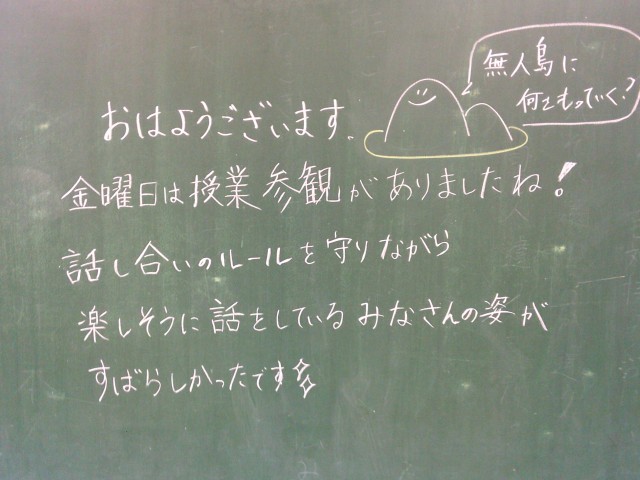 おはようございます。
無人島に
何をもっていく?
金曜日は授業参観がありましたね!
話し合いのルールを守りながら
楽しそうに話をしているみなさんの姿が
すばらしかったです